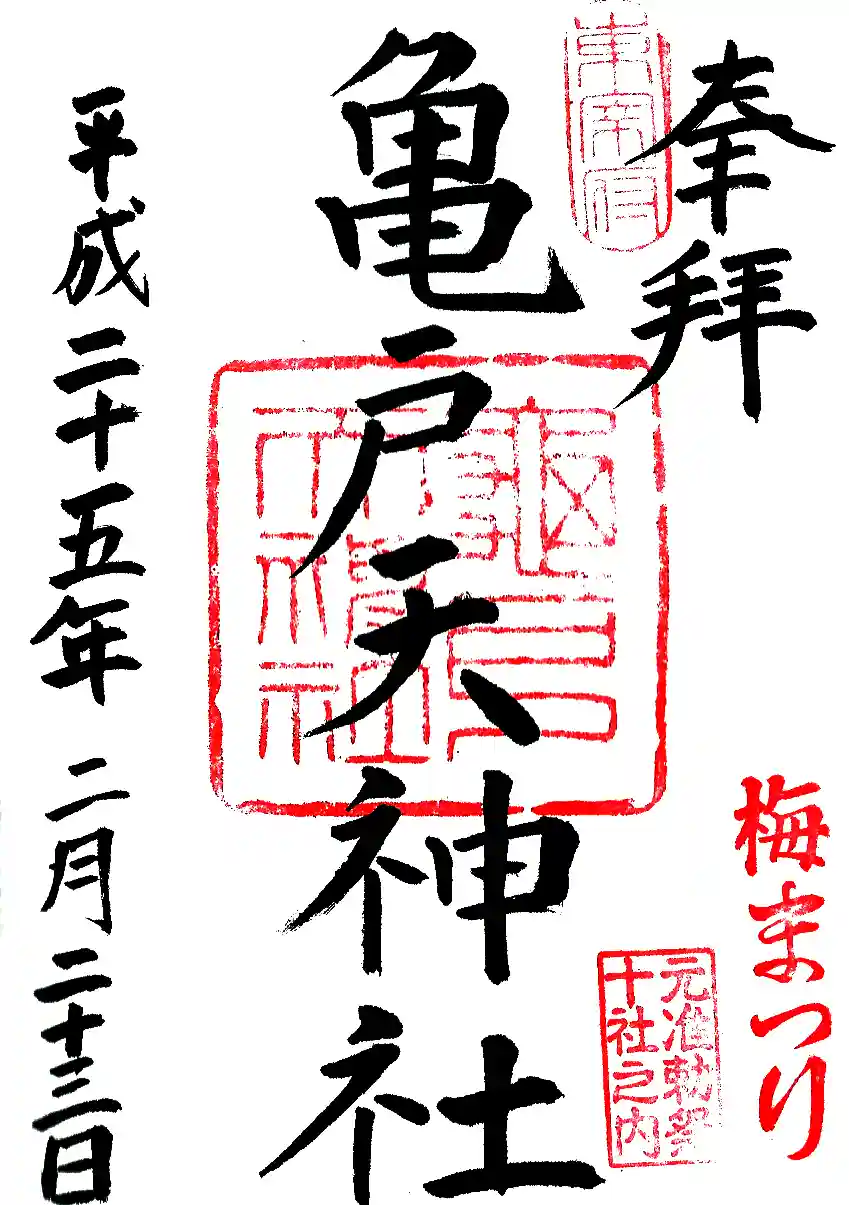 奉拝
東宰府
亀戸天神社
平成二十五年二月二十三日
梅まつり
元准勅祭
十社之内